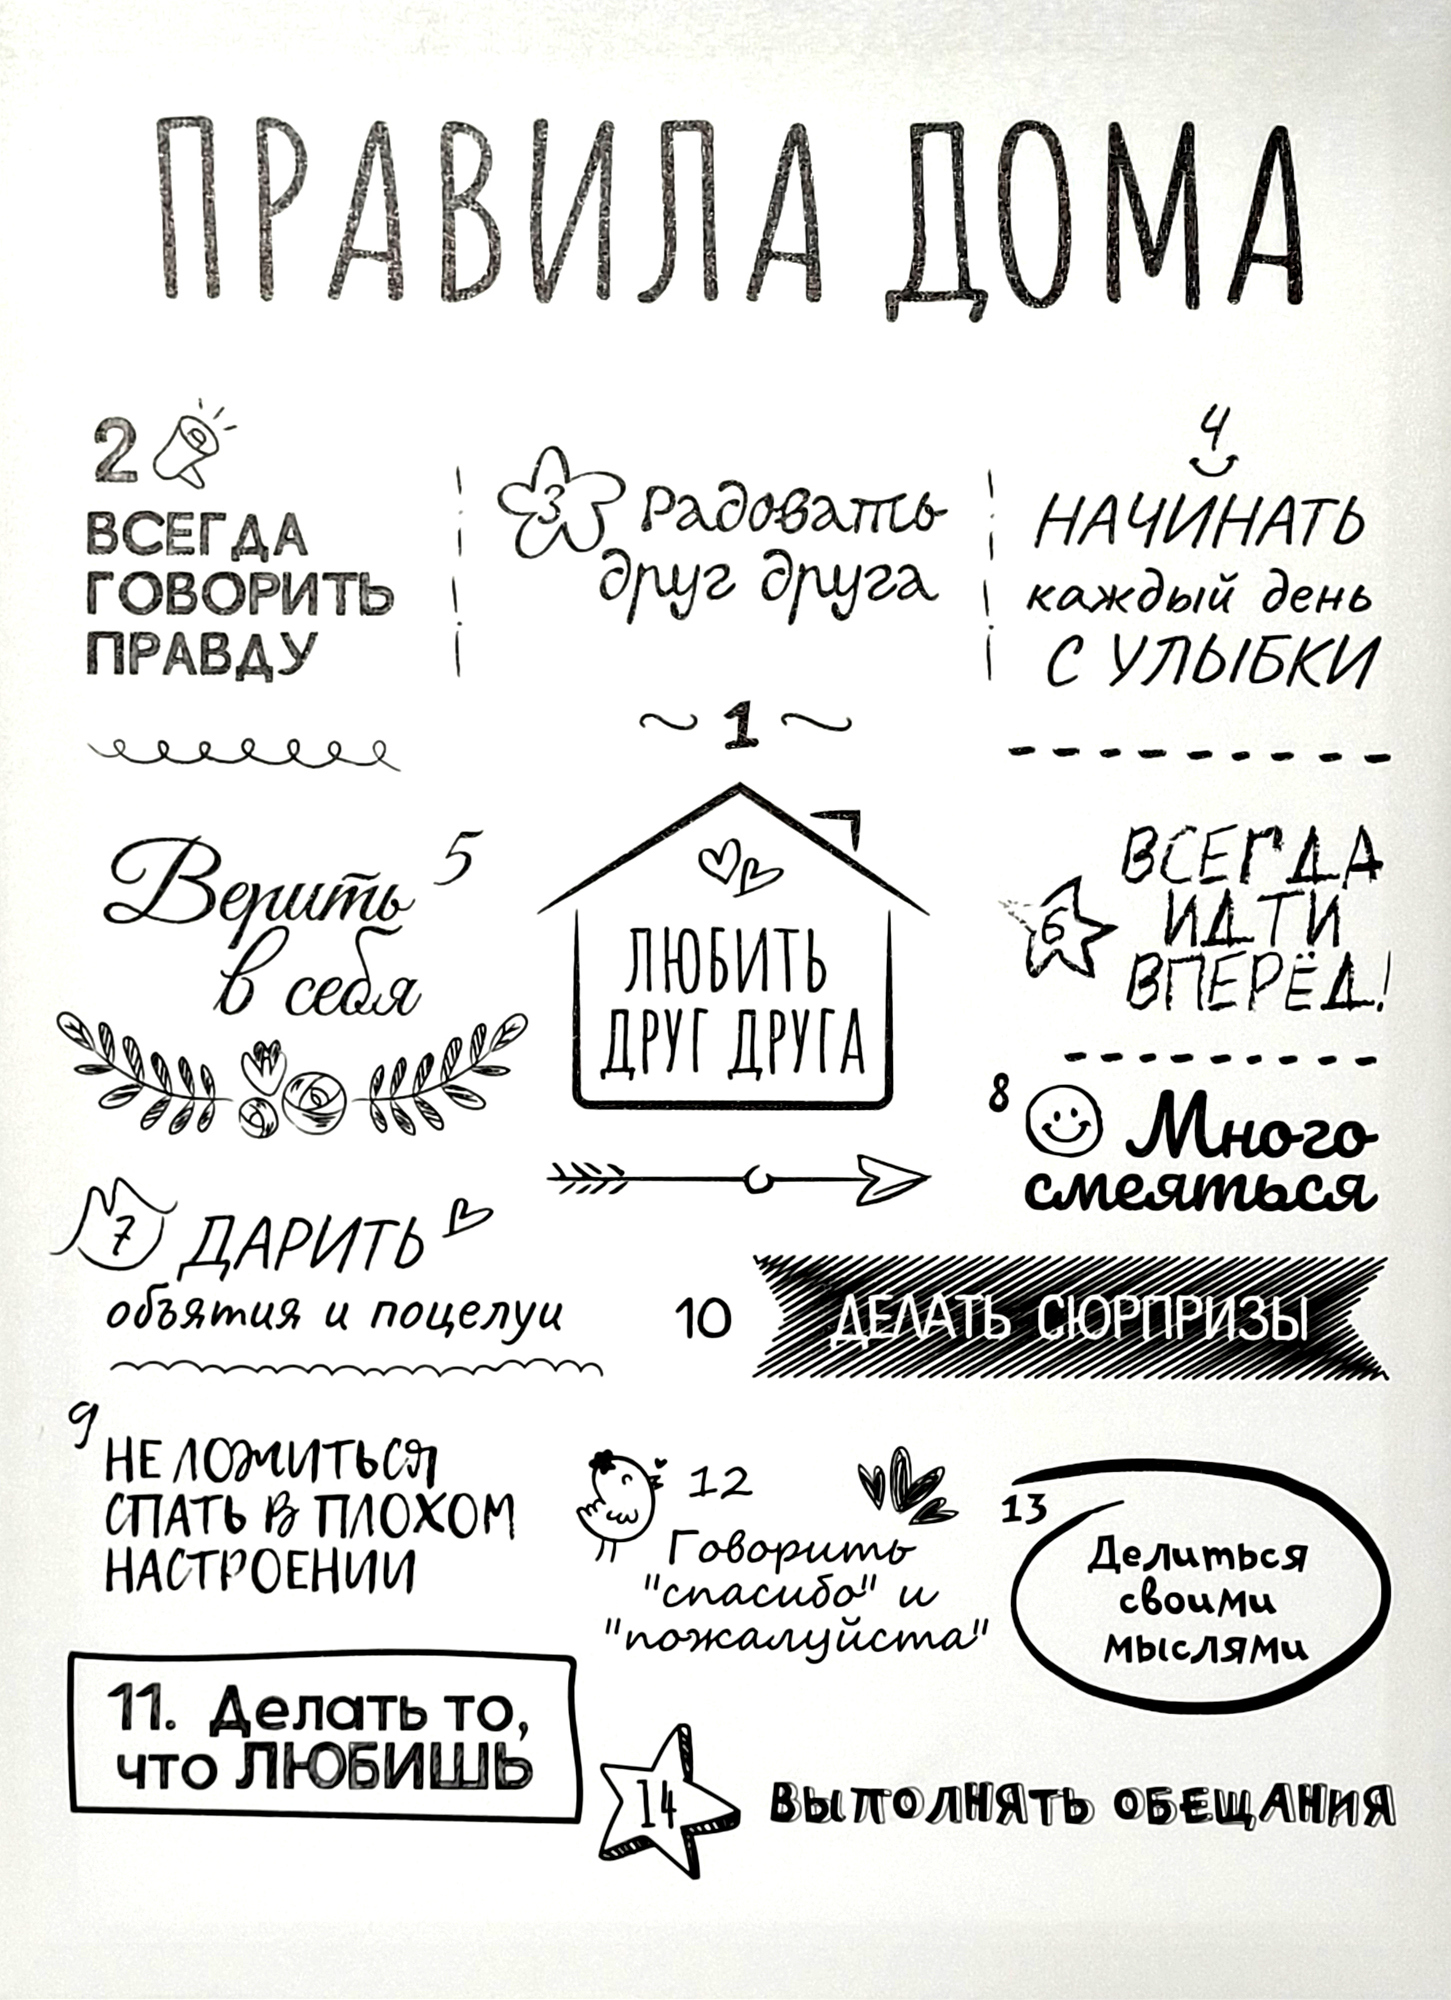 ПРАВИЛА ДОМА
2
ВСЕГДА
ГОВОРИТЬ
ПРАВДУ
3 Радовать
друг друга
4
НАЧИНАТЬ
каждый день
С УЛЫБКИ
1
ЛЮБИТЬ
ДРУГ ДРУГА
5
Верить
в себя
6
ВСЕГДА
ИДТИ
ВПЕРЁД!
7 ДАРИТЬ
объятия и поцелуи
8 Много
смеяться
9
НЕ ЛОЖИТЬСЯ
СПАТЬ В ПЛОХОМ
НАСТРОЕНИИ
10 ДЕЛАТЬ СЮРПРИЗЫ
11. Делать то,
что ЛЮБИШЬ
12
Говорить
"спасибо" и
"пожалуйста"
13
Делиться
своими
мыслями
14 ВЫПОЛНЯТЬ ОБЕЩАНИЯ